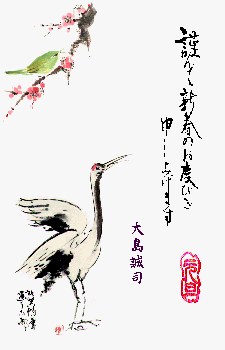 謹んで新春のお慶びを
申し上げます
大島誠司
元旦